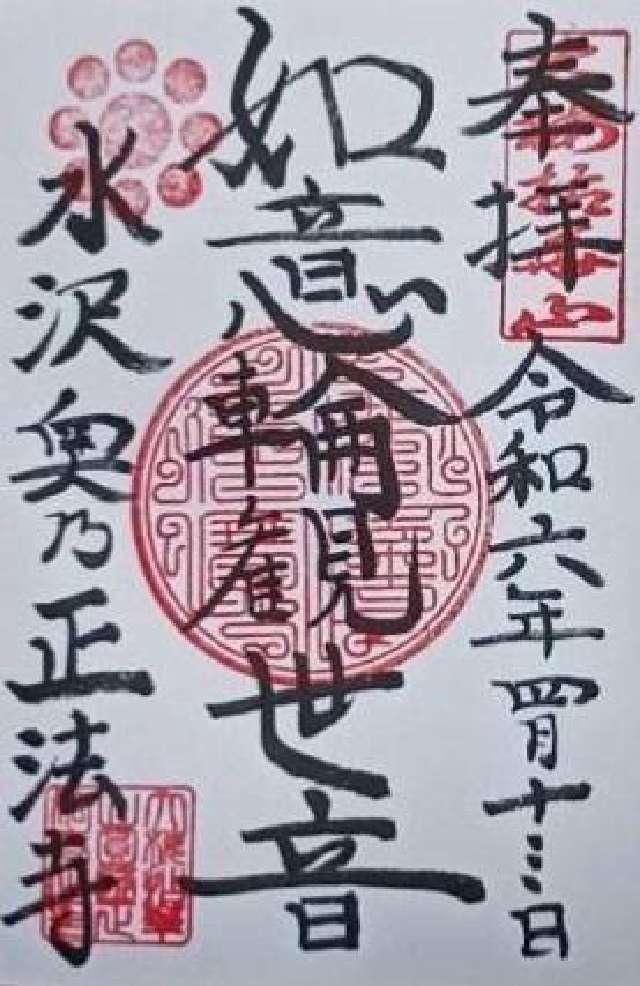 奉拝 令和六年四月十三日
如意輪観世音
水沢奥乃正法寺